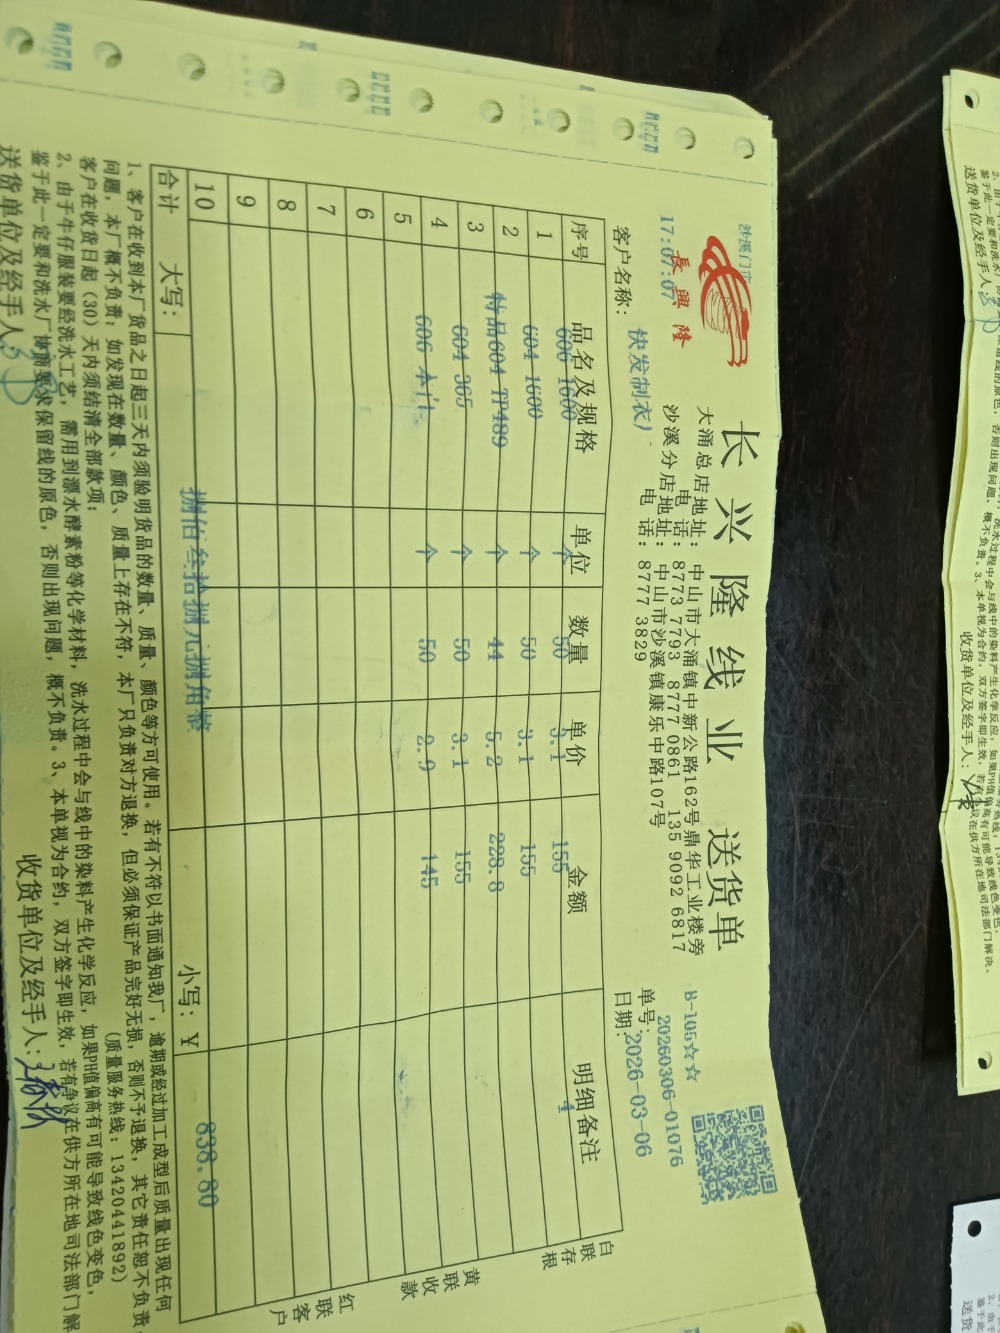 沙溪门市
17:07:07
長興隆
长兴隆线业 送货单
大涌总店地址：中山市大涌镇中新公路162号鼎华工业楼旁
电 话：8773 7793 8777 0861 135 9092 6817
沙溪分店地址：中山市沙溪镇康乐中路107号
电 话：8777 3829
B-105☆☆
单号：20260306-01076
客户名称：快发制衣厂
日期：2026-03-06
序号 品名及规格 单位 数量 单价 金额 明细备注
1 606 1600 个 50 3.1 155 4
2 604 1600 个 50 3.1 155
3 特品604 TP489 个 44 5.2 228.8
4 604 365 个 50 3.1 155
5 606 本 个 50 2.9 145
6
7
8
9
10
合计 大写：捌佰叁拾捌元捌角整 小写：￥ 838.80
白联存根
黄联收款
红联客户
1、客户在收到本厂货品之日起三天内须验明货品的数量、质量、颜色等方可使用。若有不符以书面通知我厂，逾期或经过加工成型后质量出现任何
问题，本厂概不负责；如发现在数量、颜色、质量上存在不符，本厂只负责对方退换，但必须保证产品完好无损，否则不予退换，其它责任恕不负责；
客户在收货日起（30）天内须结清全部款项； （质量服务热线：13420441892）
2、由于牛仔服装要经洗水工艺，需用到漂水酵素粉等化学材料，洗水过程中会与线中的染料产生化学反应，如果PH值偏高有可能导致线色变色，
鉴于此一定要和洗水厂协商要求保留线的原色，否则出现问题，概不负责。3、本单视为合约，双方签字即生效，若有争议在供方所在地司法部门解
送货单位及经手人
收货单位及经手人：